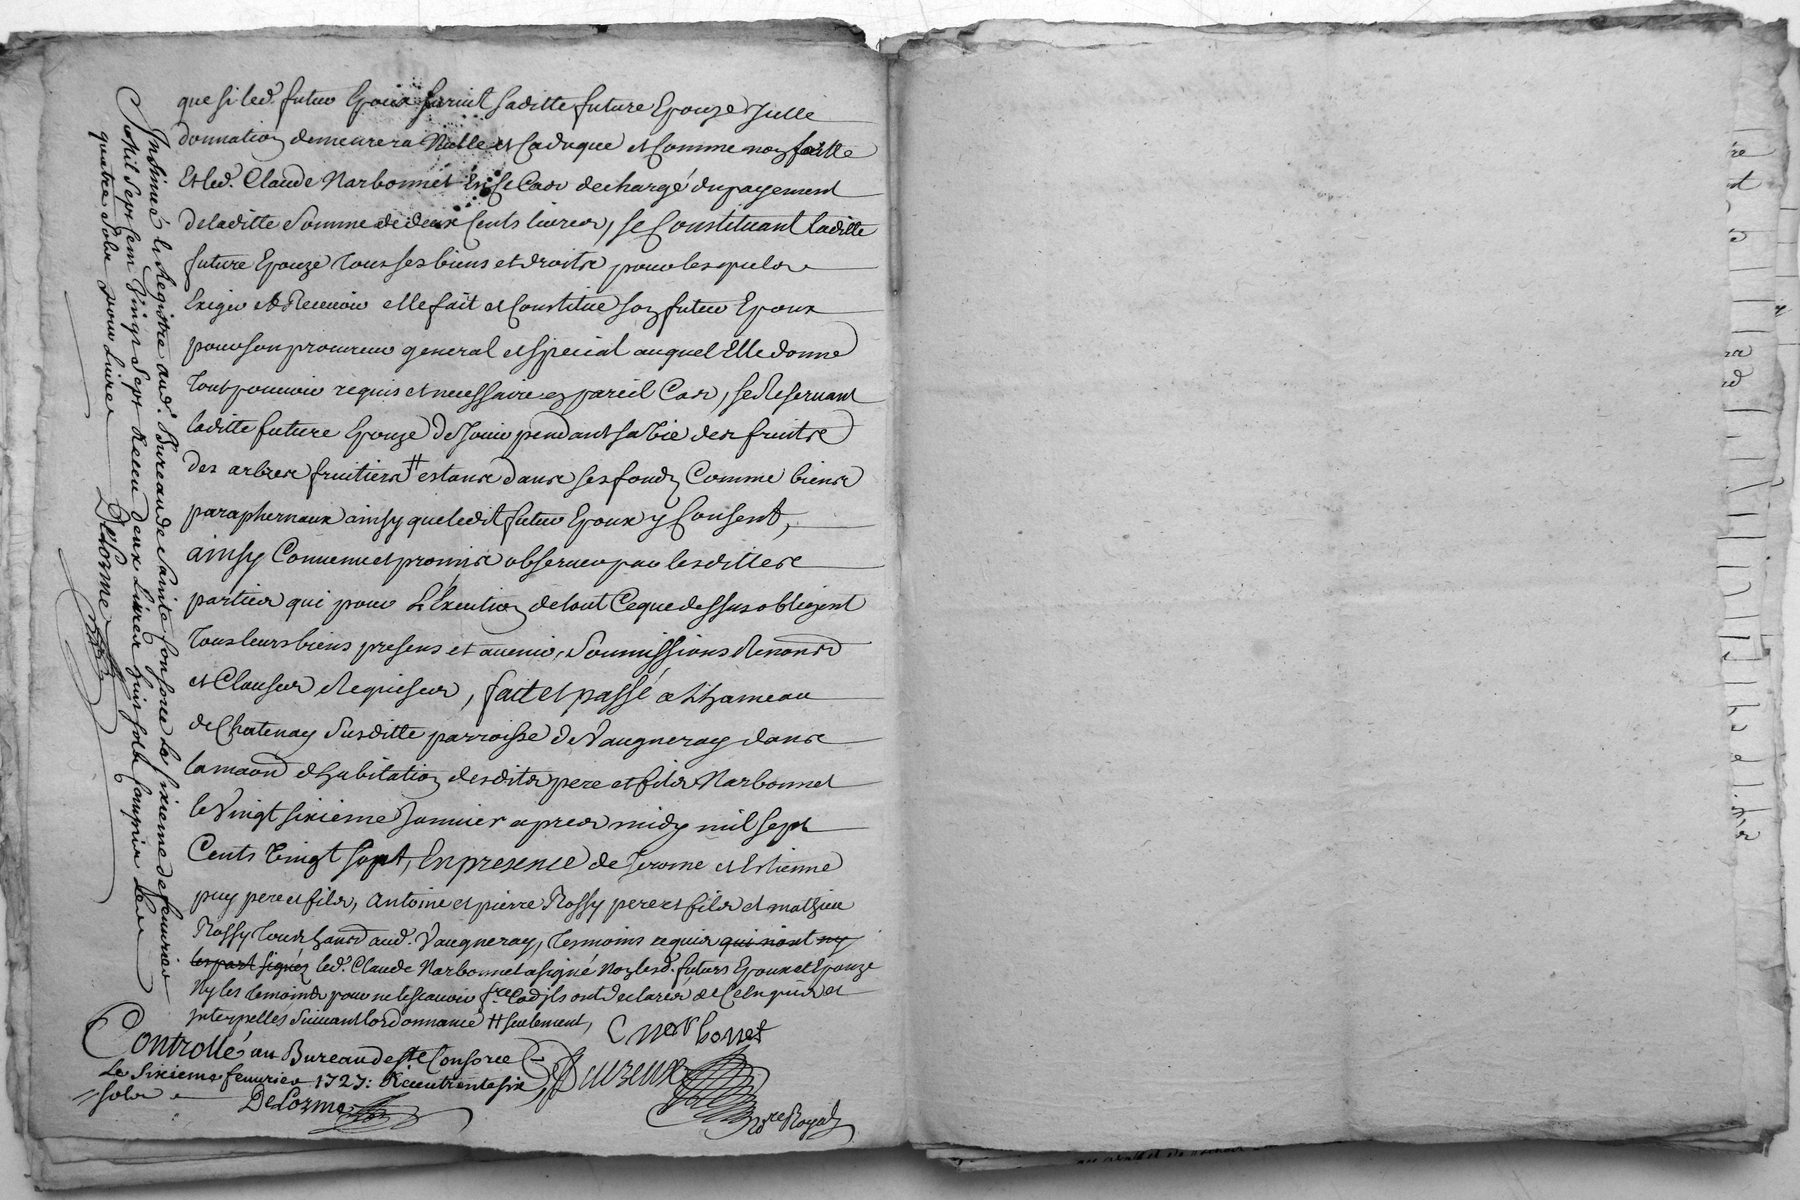 que si led. futur Epoux survit saditte future Epouze Jcelle
donnation demeurera Nulle et Caduque et Comme non faitte
Et led. Claude Narbonnet En Ce Cas dechargé du payement
de laditte Somme de deux Cents livres, se Constituant laditte
future Epouze tous ses biens et droits pour lesquels
Exiger et Recevoir elle fait et Constitue son futur Epoux
pour son procureur general et special auquel Elle donne
tout pouvoir requis et necessaire en pareil Cas, se Reservant
laditte future Epouze de Jouir pendant sa vie des fruits
des arbres fruitiers # estants dans ses fonds Comme biens
paraphernaux ainsy que ledit futur Epoux y Consent,
ainsy Convenu et promis observer par lesdittes
parties qui pour L'Execution de tout Ce que dessus obligent
tous leurs biens presens et avenir, Soumissions Renonōns
et Clauses Requises, fait et passé a L'hameau
de Chatenay susditte parroisse de Vaugneray dans
la maōn d'habitation desdits pere et fils Narbonnet
le vingt sixieme Janvier apres midy mil sept
Cents vingt sept, En presence de Jerome et Estienne
puy pere et fils, Antoine et pierre Rossy pere et fils et mathieu
Rossy tous habitans aud. Vaugneray, tesmoins requis qui n'ont ny
les part signés led. Claude Narbonnet a signé Non lesd. futurs Epoux et Epouze
Ny les temoins pour ne le scavoir fre Co͞e ils ont declarés de Ce Enquis et
Interpellés Suivant l'ordonnance # seulement,
C narbonnet
Controllé au Bureau de Ste Consorce
Le Sixieme fevrier 1727: Receu trente six
sols
DeLorme
Duzeux
Nore Royal
Insinué & Registré aud. Bureau de Sainte Consorce Le sixieme de fevrier
Mil Sept Cent Vingt Sept Receu deux Livres huit sols Compris Les
quatre Sols pour Livre DeLorme